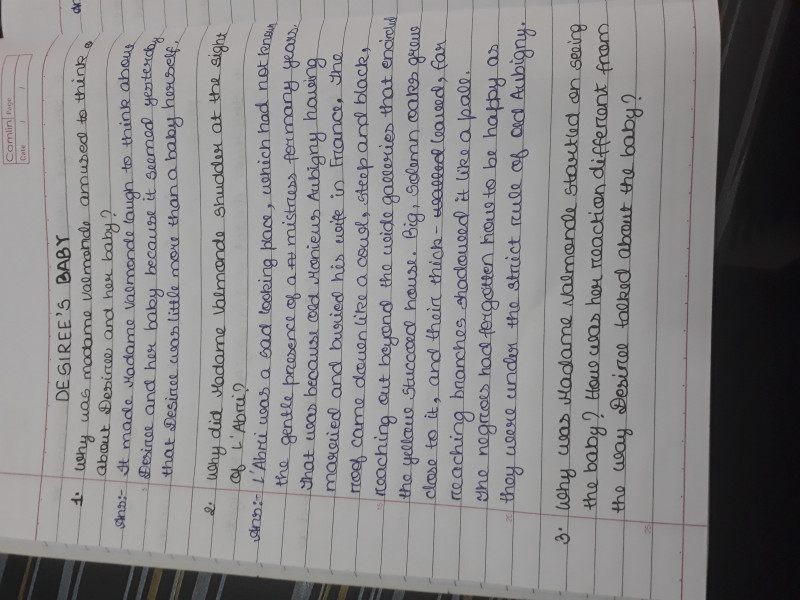 Camlin Page
Date / /
DESIREE'S BABY
1. Why was madame Valmonde amused to think
about Desiree and her baby?
Ans:- It made Madame Valmonde laugh to think about
Desiree and her baby because it seemed yesterday
that Desiree was little more than a baby herself.
2. Why did Madame Valmonde shudder at the sight
of L'Abri?
Ans:- L'Abri was a sad looking place, which had not known
the gentle presence of a mistress for many years.
That was because old Monieus Aubigny having
married and buried his wife in France. The
roof came down like a cowl, steep and black,
reaching out beyond the wide galleries that encircled
the yellow stuccoed house. Big, solemn oaks grew
close to it, and their thick-leaved, far
reaching branches shadowed it like a pall.
The negroes had forgotten how to be happy as
they were under the strict rule of old Aubigny.
3. Why was Madame Valmonde startled on seeing
the baby? How was her reaction different from
the way Desiree talked about the baby?
15
20
25